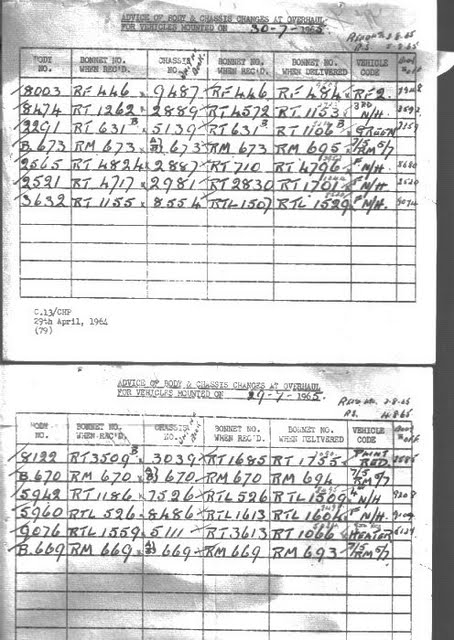 ADVICE OF BODY & CHASSIS CHANGES AT OVERHAUL
FOR VEHICLES MOUNTED ON 30-7-1965.
BODY NO. BONNET NO. WHEN REC'D. CHASSIS NO. BONNET NO. WHEN REC'D. BONNET NO. WHEN DELIVERED VEHICLE CODE
8003 RF446 9487 RF446 RF484 RF2.
8474 RT1262 2889 RT4572 RT1153 N/H.
2291 RT631 B 5139 RT631 B RT1106 B GREEN
B.673 RM 673 673 RM 673 RM 695 RM 5/7
2565 RT4824 2887 RT710 RT4796 F N/H.
2521 RT4717 2981 RT2830 RT1701 F N/H.
3632 RT1155 8554 RTL1507 RTL1529 F N/H.
C.13/CHP
29th April, 1964
(79)
ADVICE OF BODY & CHASSIS CHANGES AT OVERHAUL
FOR VEHICLES MOUNTED ON 29-7-1965.
BODY NO. BONNET NO. WHEN REC'D. CHASSIS NO. BONNET NO. WHEN REC'D. BONNET NO. WHEN DELIVERED VEHICLE CODE
8122 RT3509 B 3039 RT1685 RT1755 PAINT RED.
B.670 RM 670 670 RM 670 RM 694 RM 5/7
5942 RT1186 7526 RTL526 RTL1509 N/H
5960 RTL 526 8486 RTL1613 RTL1604 F N/H.
9076 RTL1559 5111 RT3613 RT1066 HEATER
B.669 RM 669 669 RM 669 RM 693 RM 5/7